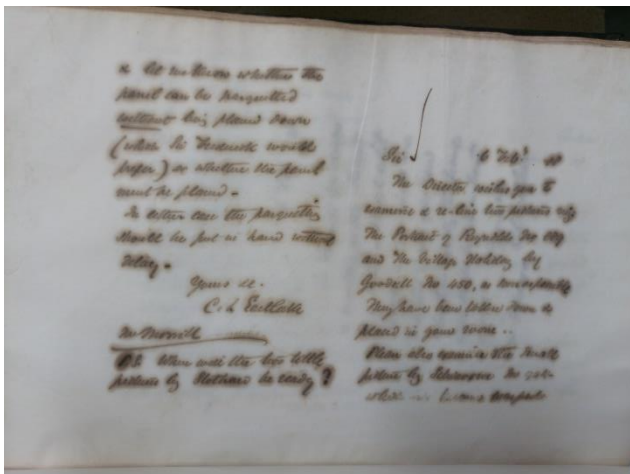 & let me know whether the
panel can be parquetted
without being planed down
(which Sir Frederick would
prefer) or whether the panel
must be planed -
In either case the parquetting
should be put in hand without
delay.
Yours &c.
C. L. Eastlake
Mr Morrill
P.S. When will the two little
pictures by Stothard be ready?
Sir 6 Feb.
The Director wishes you to
examine & re-line two pictures viz
The Portrait of Reynolds No 889
and The Village Holiday by
Goodall No 450, as
They have been taken down &
placed in your room ..
Please also examine the small
picture by No
which is